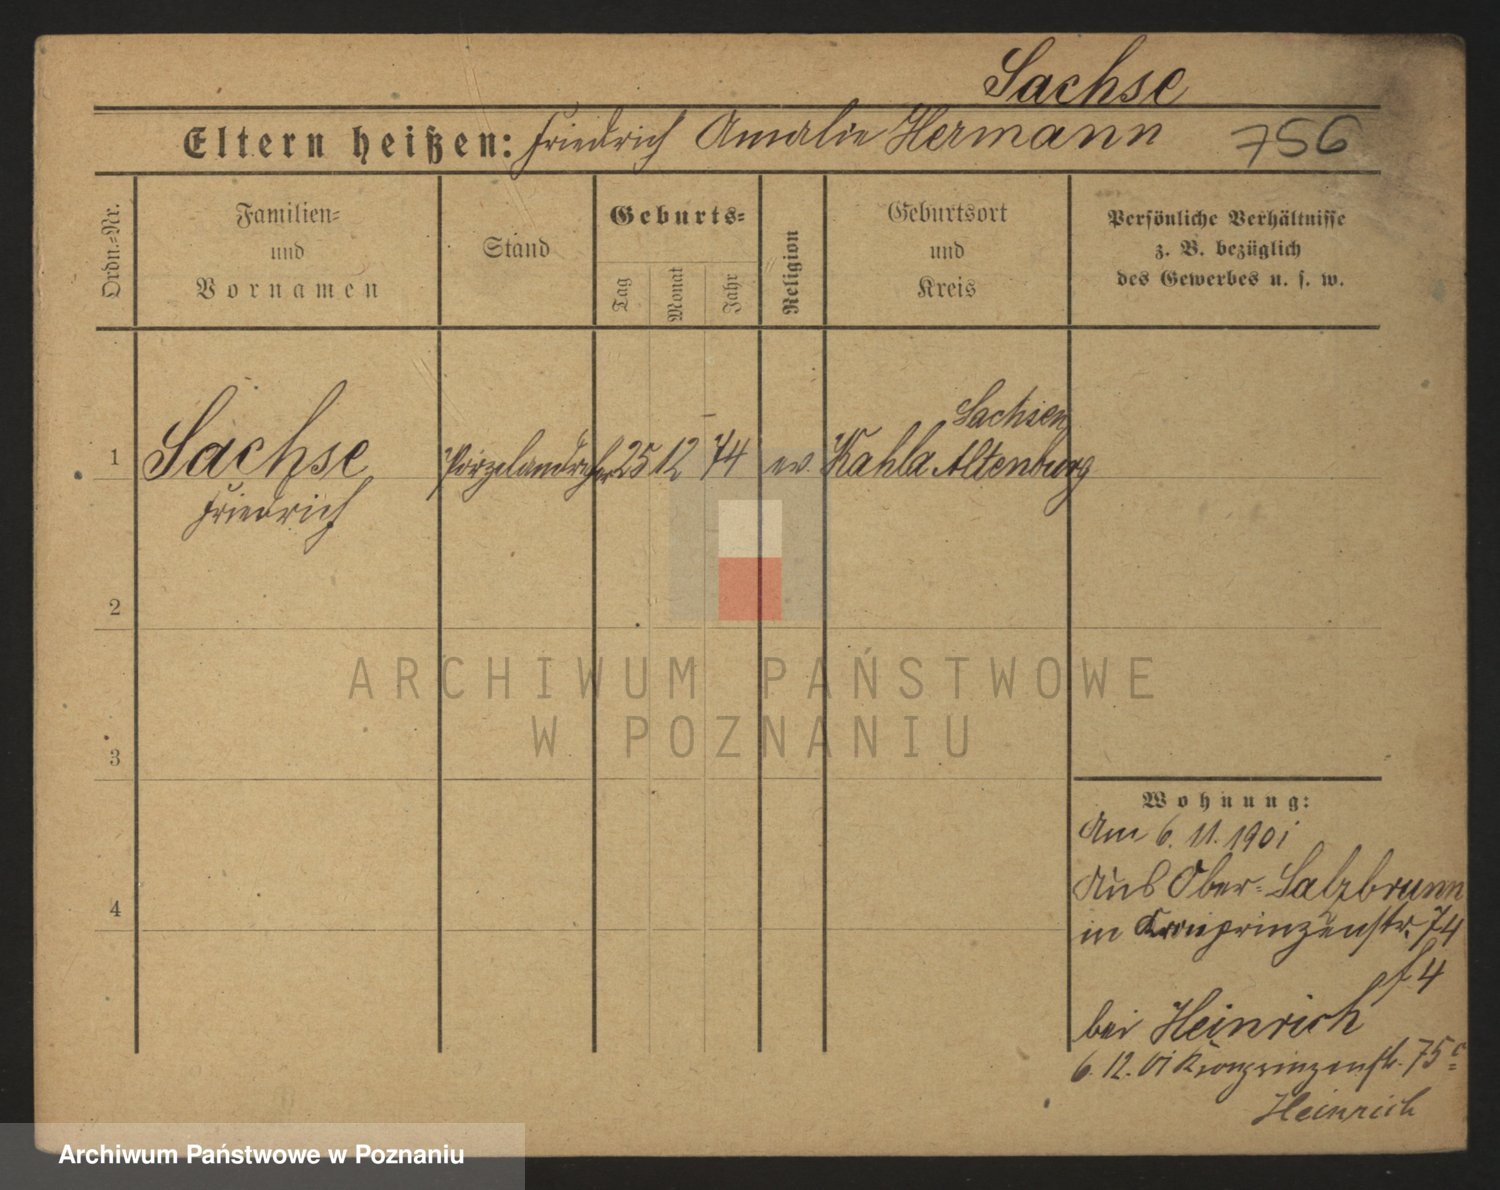 Sachse
Eltern heißen: Friedrich Amalie Hermann 756
Ordn.=Nr.
Familien=
und
Vornamen
Stand
Geburts=
Tag
Monat
Jahr
Religion
Geburtsort
und
Kreis
Persönliche Verhältnisse
z. B. bezüglich
des Gewerbes u. s. w.
Sachsen
1 Sachse 25 12 74 ev. Kahla Altenburg
Friedrich
2
ARCHIWUM PAŃSTWOWE
W POZNANIU
3
Wohnung:
Am 6. 11. 1901
Aus Ober-Salzbrunn
in Kronprinzenstr. 74
4
bei Heinrich
6. 12. 01 Kronprinzenstr. 75
Heinrich
Archiwum Państwowe w Poznaniu